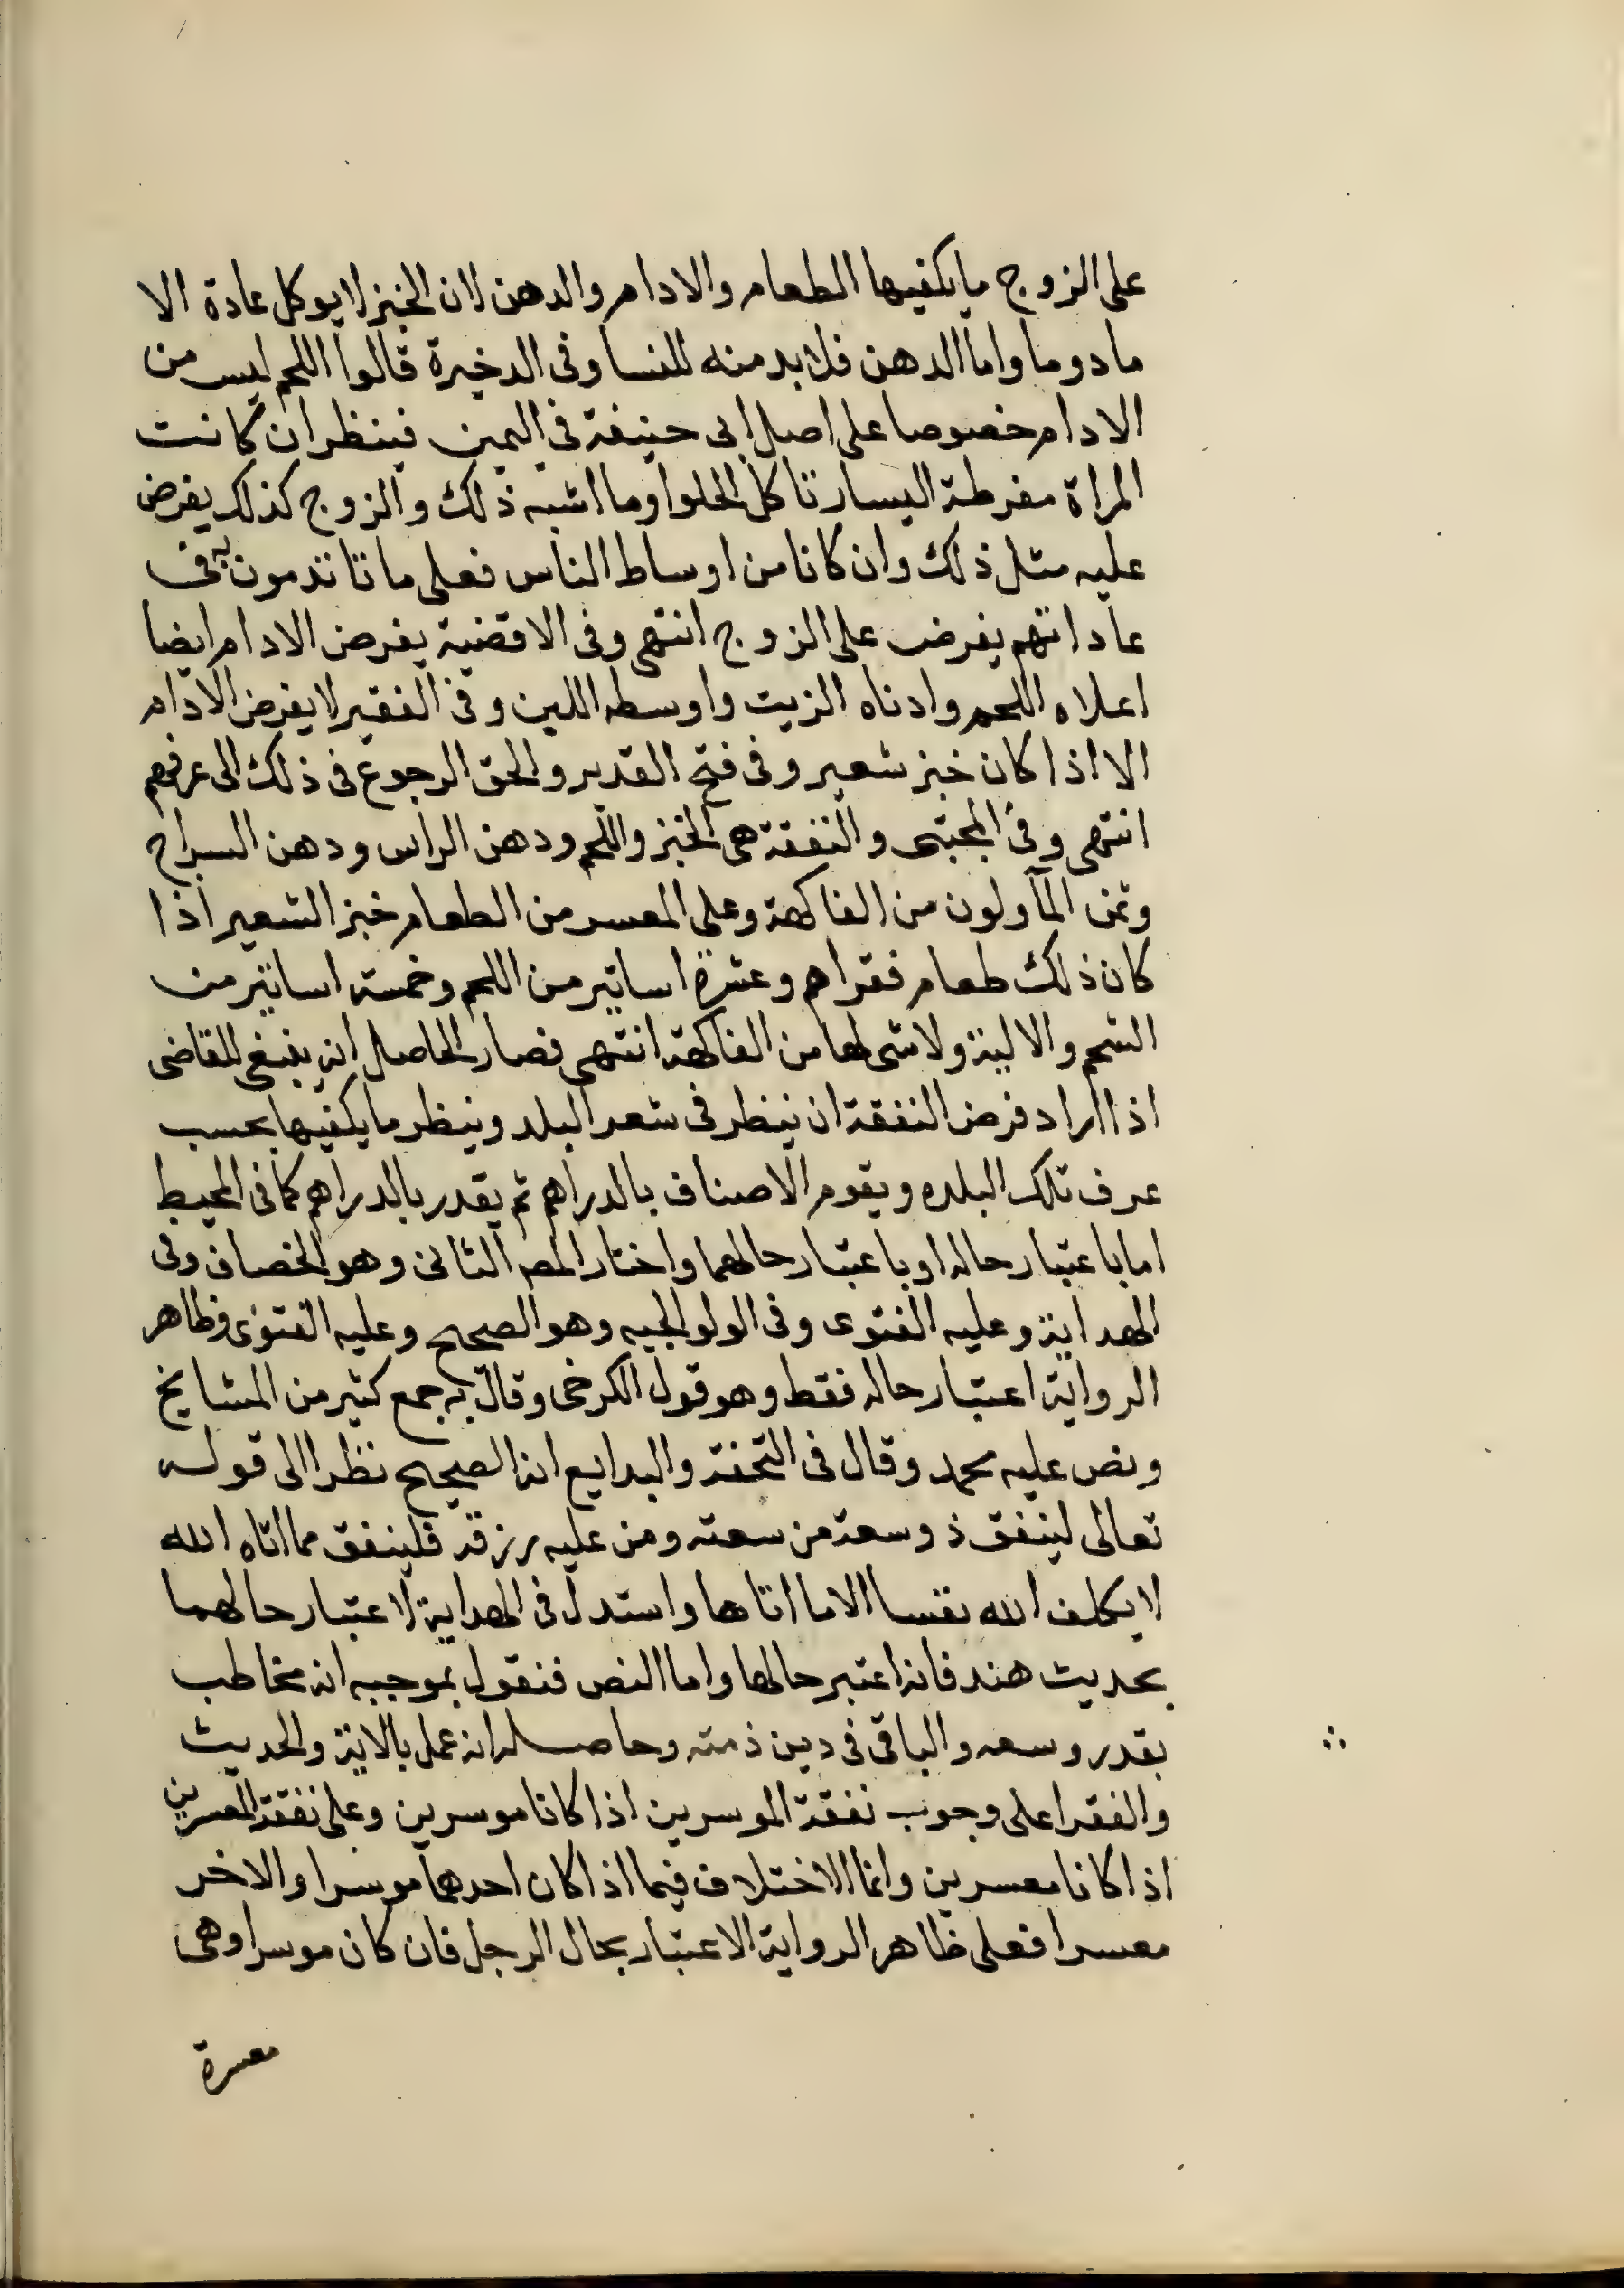 على الزوج ما يكفيها الطعام والادام والدهن لان الخبز لا يوكل عادة الا
مادوما واما الدهن فلا بد منه للنسا وفى الدخيرة قالوا اللحم ليس من
الادام خصوصا على اصل ابى حنيفة فى اليمين فينظر ان كانت
المراة مفرطة اليسار تاكل الحلوا وما اشبه ذلك والزوج كذلك يفرض
عليه مثل ذلك وان كانا من اوساط الناس فعلى ما تاتدمون به فى
عاداتهم يفرض على الزوج انتهى وفى الاقضية يفرض الادام ايضا
اعلاه اللحم وادناه الزيت واوسطه اللبن وفى الفقير لا يفرض الادام
الا اذا كان خبز شعير وفى فتح القدير والحق الرجوع فى ذلك الى عرفهم
انتهى وفى المجتبى والنفقة هى الخبز واللحم ودهن الراس ودهن السراج
وثمن المآ ولون من الفاكهة وعلى المعسر من الطعام خبز الشعير اذا
كان ذلك طعام فقراهم وعشرة اساتير من اللحم وخمسة اساتير من
الشحم والالية ولا شى لها من الفاكهة انتهى فصار الحاصل انه ينبغى للقاضى
اذا اراد فرض النفقة ان ينظر فى شعر البلد وينظر ما يكفيها بحسب
عرف تلك البلده ويقوم الاصناف بالدراهم ثم يقدر بالدراهم كما فى المحيط
اما باعتبار حاله او باعتبار حالهما واختار المص الثانى وهو الخصاف وفى
الهداية وعليه الفتوى وفى الولوالجيه وهو الصحيح وعليه الفتوى وظاهر
الرواية اعتبار حاله فقط وهو قول الكرخى وقال به جمع كثير من المشايخ
ونص عليه محمد وقال فى التحفة والبدايع انه الصحيح نظرا الى قوله
تعالى لينفق ذو سعة من سعته ومن عليه رزقه فلينفق مما اتاه الله
لا يكلف الله نفسا الا ما اتاها واستدل فى الهداية لاعتبار حالهما
بحديث هند فانه اعتبر حالها واما النص فنقول بموجبه انه مخاطب
بقدر وسعه والباقى فى دين ذمته وحاصله انه عمل بالاية والحديث
والفقرا على وجوب نفقة الموسرين اذا كانا موسرين وعلى نفقة المعسرين
اذا كانا معسرين وانما الاختلاف فيما اذا كان احدهما موسرا والاخر
معسرا فعلى ظاهر الرواية الاعتبار بحال الرجل فان كان موسرا وهى
معسرة